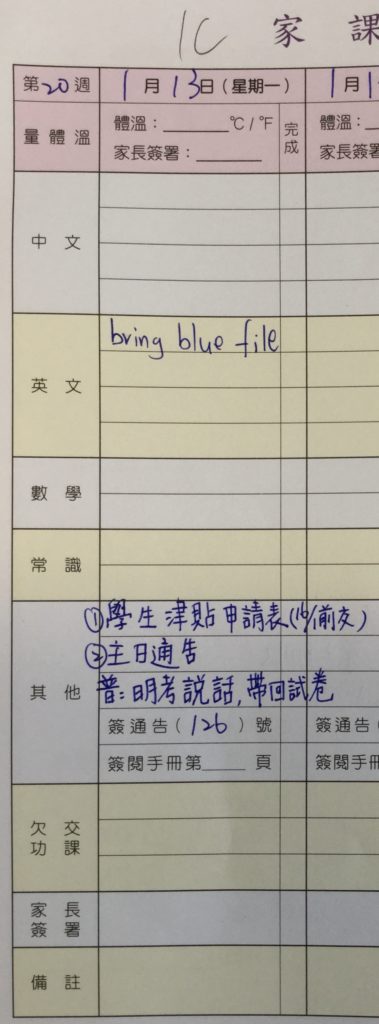 1C 家 課
第20週 1月13日(星期一) 1月1
量體溫 體溫：______°C/°F 完成 體溫：
家長簽署：______ 家長簽署
中 文
bring blue file
英 文
數 學
常 識
①學生津貼申請表(16/前交)
②主日通告
其 他 普:明考説話,帶回試卷
簽通告(126)號 簽通告(
簽閱手冊第____頁 簽閱手冊
欠 交
功 課
家 長
簽 署
備 註